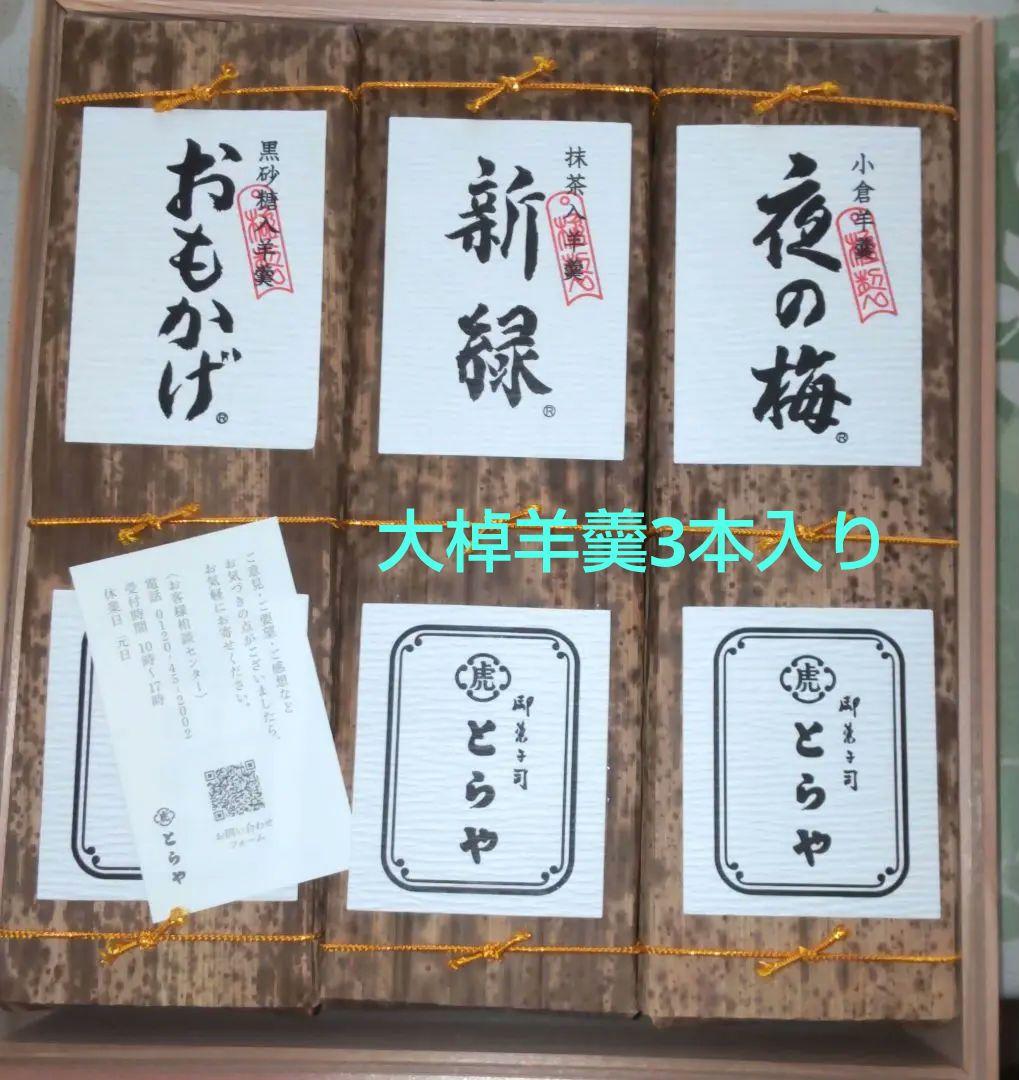 小倉羊羹
夜の梅
®
抹茶入羊羹
新緑
®
黒砂糖入羊羹
おもかげ
®
大棹羊羹3本入り
御菓子司
虎
とらや
御菓子司
虎
とらや
ご意見・ご要望・ご感想など
お気づきの点がございましたら、
お気軽にお寄せください。
〈お客様相談センター〉
電話 0120-45-2002
受付時間 10時〜17時
休業日 元日
お問い合わせ
フォーム
虎
とらや